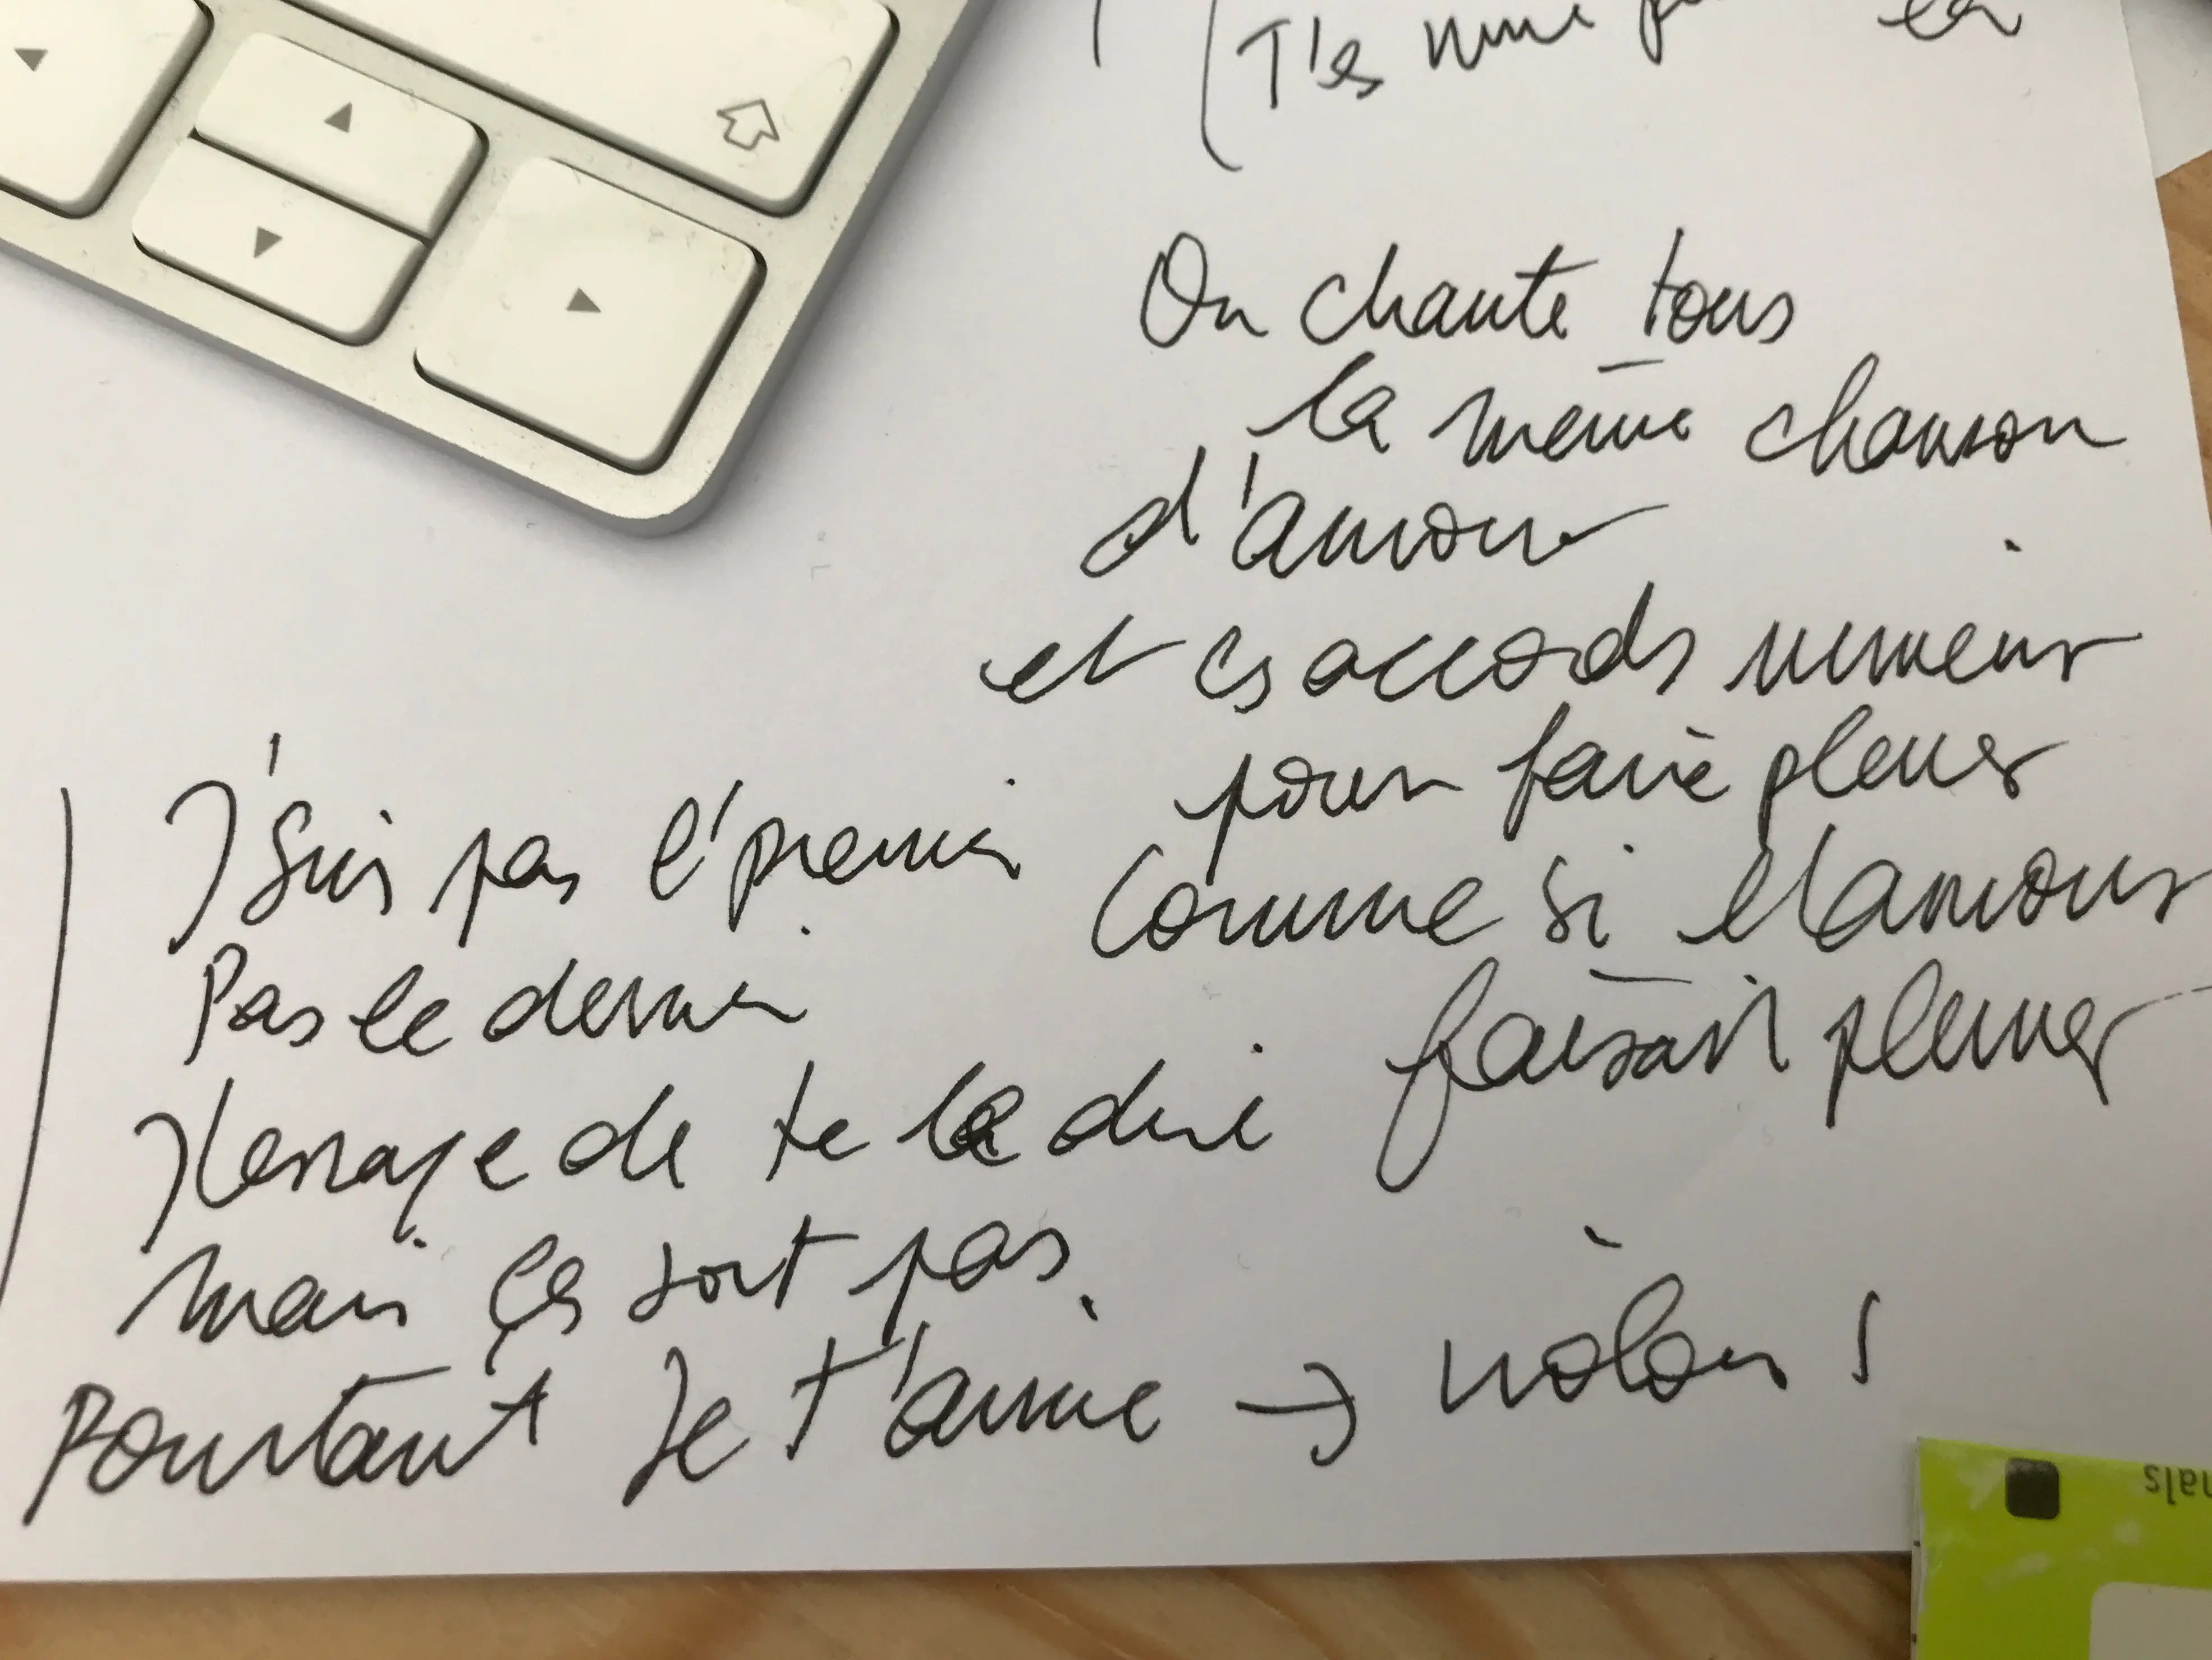 (T'es même
On chante tous
la même chanson
d'amour
et ces accords mineurs
pour faire pleurer
Comme si l'amour
faisait pleurer
J'suis pas l'premier
Pas le dernier
J'essaye de te le dire
mais ça sort pas
Pourtant Je t'aime → violons !
nals